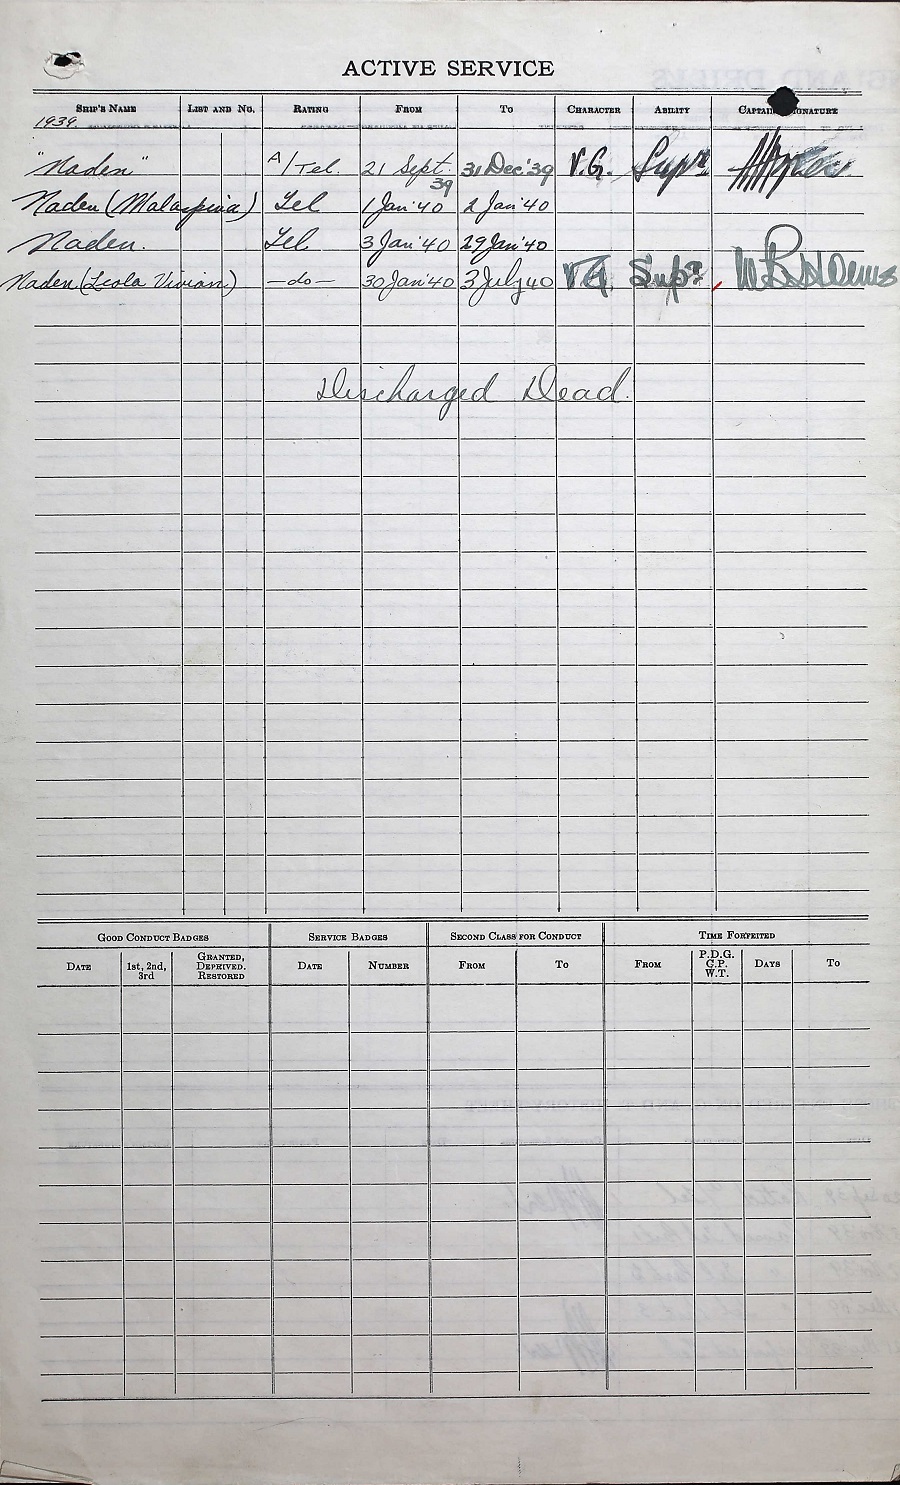 ACTIVE SERVICE
SHIP'S NAME LIST AND NO. RATING FROM TO CHARACTER ABILITY CAPTAIN'S SIGNATURE
1939.
"Naden" A/Tel. 21 Sept. 39 31 Dec '39 V.G. Supr
Naden (Malaspina) Tel 1 Jan '40 2 Jan '40
Naden. Tel 3 Jan '40 29 Jan '40
Naden (Leola Vivian) —do— 30 Jan '40 3 July 40 V.G. Supr.
Discharged Dead.
GOOD CONDUCT BADGES SERVICE BADGES SECOND CLASS FOR CONDUCT TIME FORFEITED
DATE 1st, 2nd, 3rd GRANTED, DEPRIVED. RESTORED DATE NUMBER FROM TO FROM P.D.G. C.P. W.T. DAYS TO